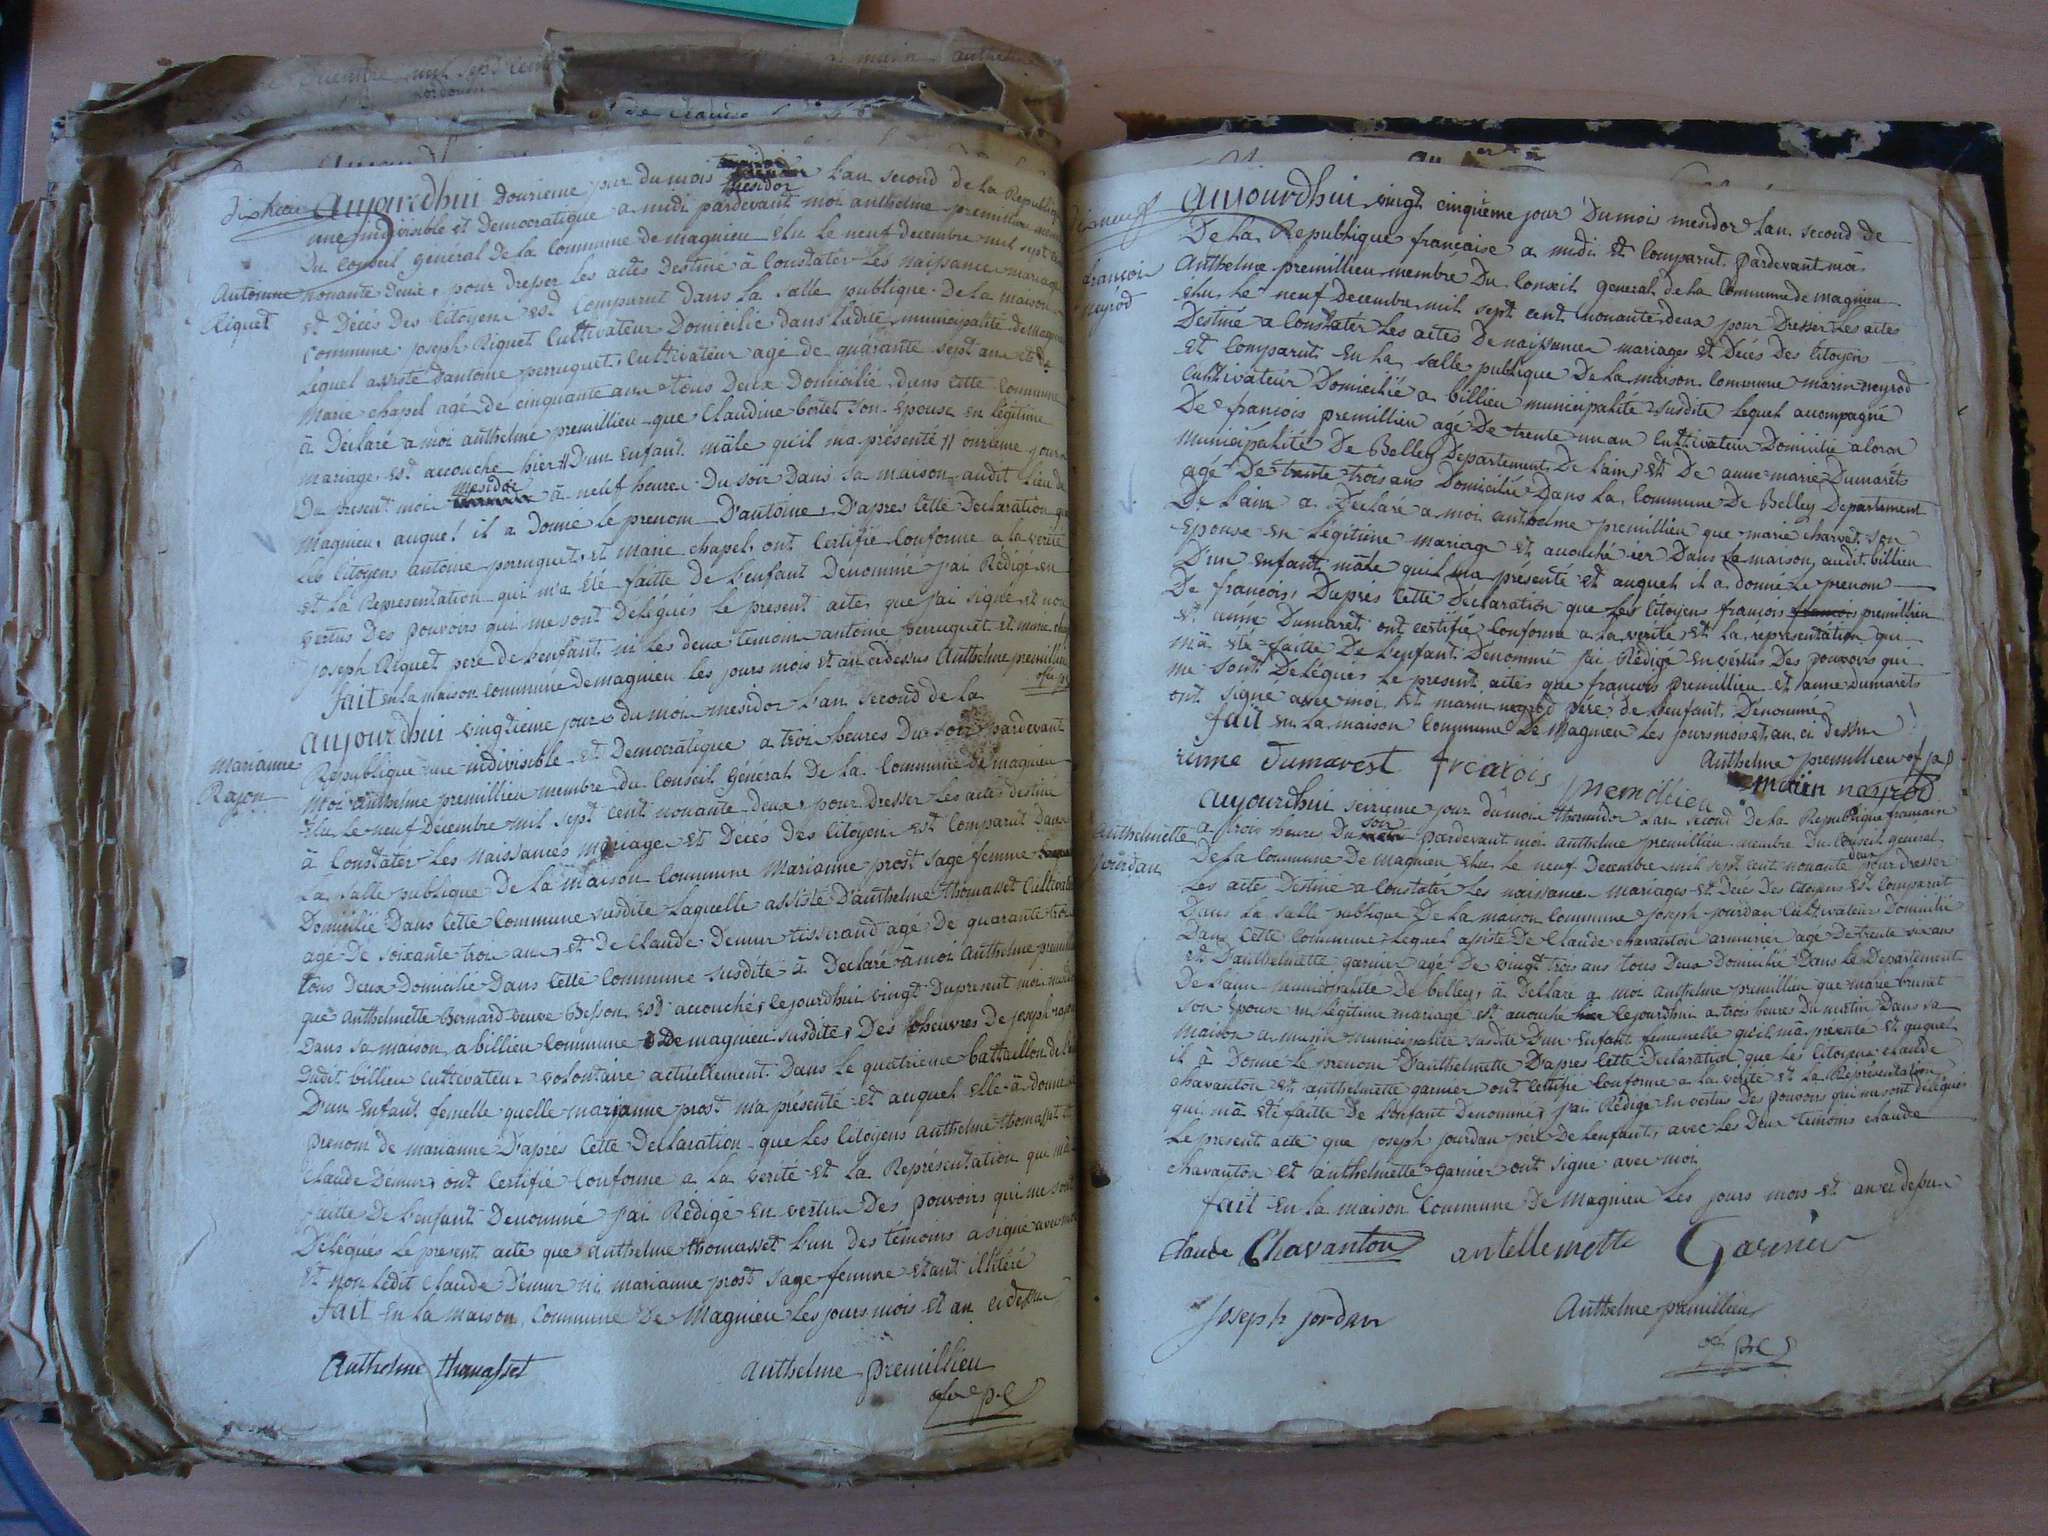 dixhuit
Antoinne
Riquet
Aujourdhui douzieme jour du mois mesidor Lan second de La Republique
une indivisible et Democratique a midi pardevant moi anthelme premillieu membre
Du Conseil général de la Commune de magnieu elu le neuf decembre mil sept cent
nonante deux, pour dresser les actes destiné à Constater les naissance mariage
et Décés des Citoyens est Comparut dans la salle publique de la maison
Commune joseph Riquet Cultivateur Domicilié dans ladite municipalité de magnieu
Lequel assisté d'antoine perruquet, Cultivateur agé de quarante sept ans et de
marie chapel agé de cinquante ans tous deux domicilié dans cette commune
à Déclaré a moi anthelme premillieu que Claudine bortet son épouse en légitime
mariage est accouché hier D'un enfant mâle quil ma présenté onzieme jour
Du present mois mesidor à neuf heure du soir dans sa maison audit lieu de
magnieu, auquel il a donné le prenom D'antoine, D'apres cette Declaration que
Les Citoyens antoine perruquet, et marie chapel, ont certifié Conforme a la vérité
et la Representation qui m'a été faitte de L'enfant Denommé j'ai Rédigé en
vertus Des pouvoirs qui me sont delegués le present acte, que j'ai signé et non
joseph Riquet pere de L'enfant ni les deux temoins antoine perruquet et marie chapel
fait en la maison commune de magnieu les jours mois et an cidessus Anthelme premillieu
of p
marianne
Rajon
Aujourdhui vingtieme jour du moi mesidor L'an second de la
Republique une indivisible et Democratique a troi heures du soir pardevant
moi anthelme premillieu membre du Conseil Général De la Commune de magnieu
elu le neuf décembre mil sept cent nonante deux, pour dresser les actes destiné
à Constater Les naissances mariages et Décés des Citoyens est Comparut dans
La salle publique De la maison Commune marianne prost sage femme
Domicilié Dans Cette Commune susdite Laquelle assisté D'anthelme thomasset Cultivateur
agé de soixante troi ans, et De Claude Demur tisserand agé De quarante troi
tous deux Domicilié Dans Cette Commune susdite à Declaré à moi Anthelme premillieu
que anthelmette Bernard veuve Besson, est accouché, cejourdhui vingt du present moi mesidor
Dans sa maison a billieu Commune De magnieu susdite, Des oheuvres De joseph rajon
Dudit billieu cultivateur volontaire actuellement Dans le quatrieme battaillon de L'ain
D'un enfant femelle quelle marianne prost ma présenté et auquel elle à donné le
prenom de marianne D'apres Cette Declaration que Les Citoyens anthelme thomasset et
Claude Demur, ont Certifié Conforme a la verité et la Représentation qui m'a été
faitte De L'enfant Denommé j'ai Rédigé en vertus Des pouvoirs qui me sont
Delégués Le present acte que anthelme thomasset L'un des témoins a signé avec moi
et non Ledit Claude Demur ni marianne prost sage femme etant illitéré
fait en la maison Commune De Magnieu les jours mois et an cidessus
Anthelme thomasset anthelme premillieu
of p
dixneuf
françois
neyrod
Aujourdhui vingt cinquème jour Du moi mesidor Lan second de
De la Republique française a midi et Comparut pardevant moi
Anthelme premillieu membre Du Conseil general de la Commune de magnieu
elu le neuf decembre mil sept cent nonante deux pour Dresser les actes
Destiné a Constater Les actes De naissance mariages et Décés Des Citoyens
et Comparut En la salle publique De la maison Commune marin neyrod
Cultivateur Domicilié a billieu municipalité susdite Lequel accompagné
De françois premillieu agé De trente un an Cultivateur Domicilié a
municipalité De Belley Departement De Lain, et De anne marie Dumarêts
agé De trente trois ans Domicilié Dans La Commune De Belley Departement
De Lain a Déclaré a moi anthelme premillieu que marie charvet son
Epouse en légitime mariage et accouché Dans sa maison, audit billieu
D'un enfant mâle quil ma présenté et auquel il a donné Le prenom
De françois, Daprés cette Déclaration que Les Citoyens francois premillieu
et anne Dumaret ont certifié Conforme a la vérité et la représentation qui
m'a été faitte De L'enfant Denommé j'ai Rédigé en vértus Des pouvoirs qui
me sont Delégués Le present actes que francois premillieu et anne dumarets
ont signé avec moi et marin neyrod père de L'enfant Denommé
fait en la maison Commune De Magnieu Les jours mois et an ci dessus
Anthelme premillieu of p
anne dumarest francois premillieu marin nayrod
Anthelmette
Jourdan
Aujourdhui seizieme jour du moi thermidor Lan second De la Republique française
a trois heures Du soir pardevant moi anthelme premillieu membre Du Conseil general
De la Commune De magnieu elu le neuf Decembre mil sept cent nonante deux pour dresser
Les actes Destiné a Constatér Les naissance mariages et Décé Des Citoyens est Comparut
Dans la salle publique De la maison Commune joseph jourdan Cultivateur Domicilié
Dans Cette Commune, Lequel assisté De Claude chavanton armurier agé De trente six ans
et D'anthelmette garnier agé De vingt trois ans tous Deux Domicilié Dans Le Departement
De Lain municipalité De belley, à Déclaré a moi anthelme premillieu que marie brunet
son epouse en légitime mariage est accouché cejourdhui a trois heure Du matin Dans sa
maison a municipalité susdite D'un enfant femmelle qu'il ma présenté et auquel
il à Donné Le prenom D'anthelmette D'apres Cette Declaration que Les Citoyens claude
chavanton et anthelmette garnier ont certifié Conforme a la vérité et la Représentation
qui m'à été faitte De L'enfant Denommé, j'ai Rédigé en vertus Des pouvoirs qui me sont délégués
Le present acte que joseph jourdan père De L'enfant, avec les Deux temoins claude
chavanton et anthelmette garnier ont signé avec moi
fait en la maison Commune De Magnieu Les jours mois et an ci dessus
Claude Chavanton antellemette Garnier
joseph jordan Anthelme premillieu
of p